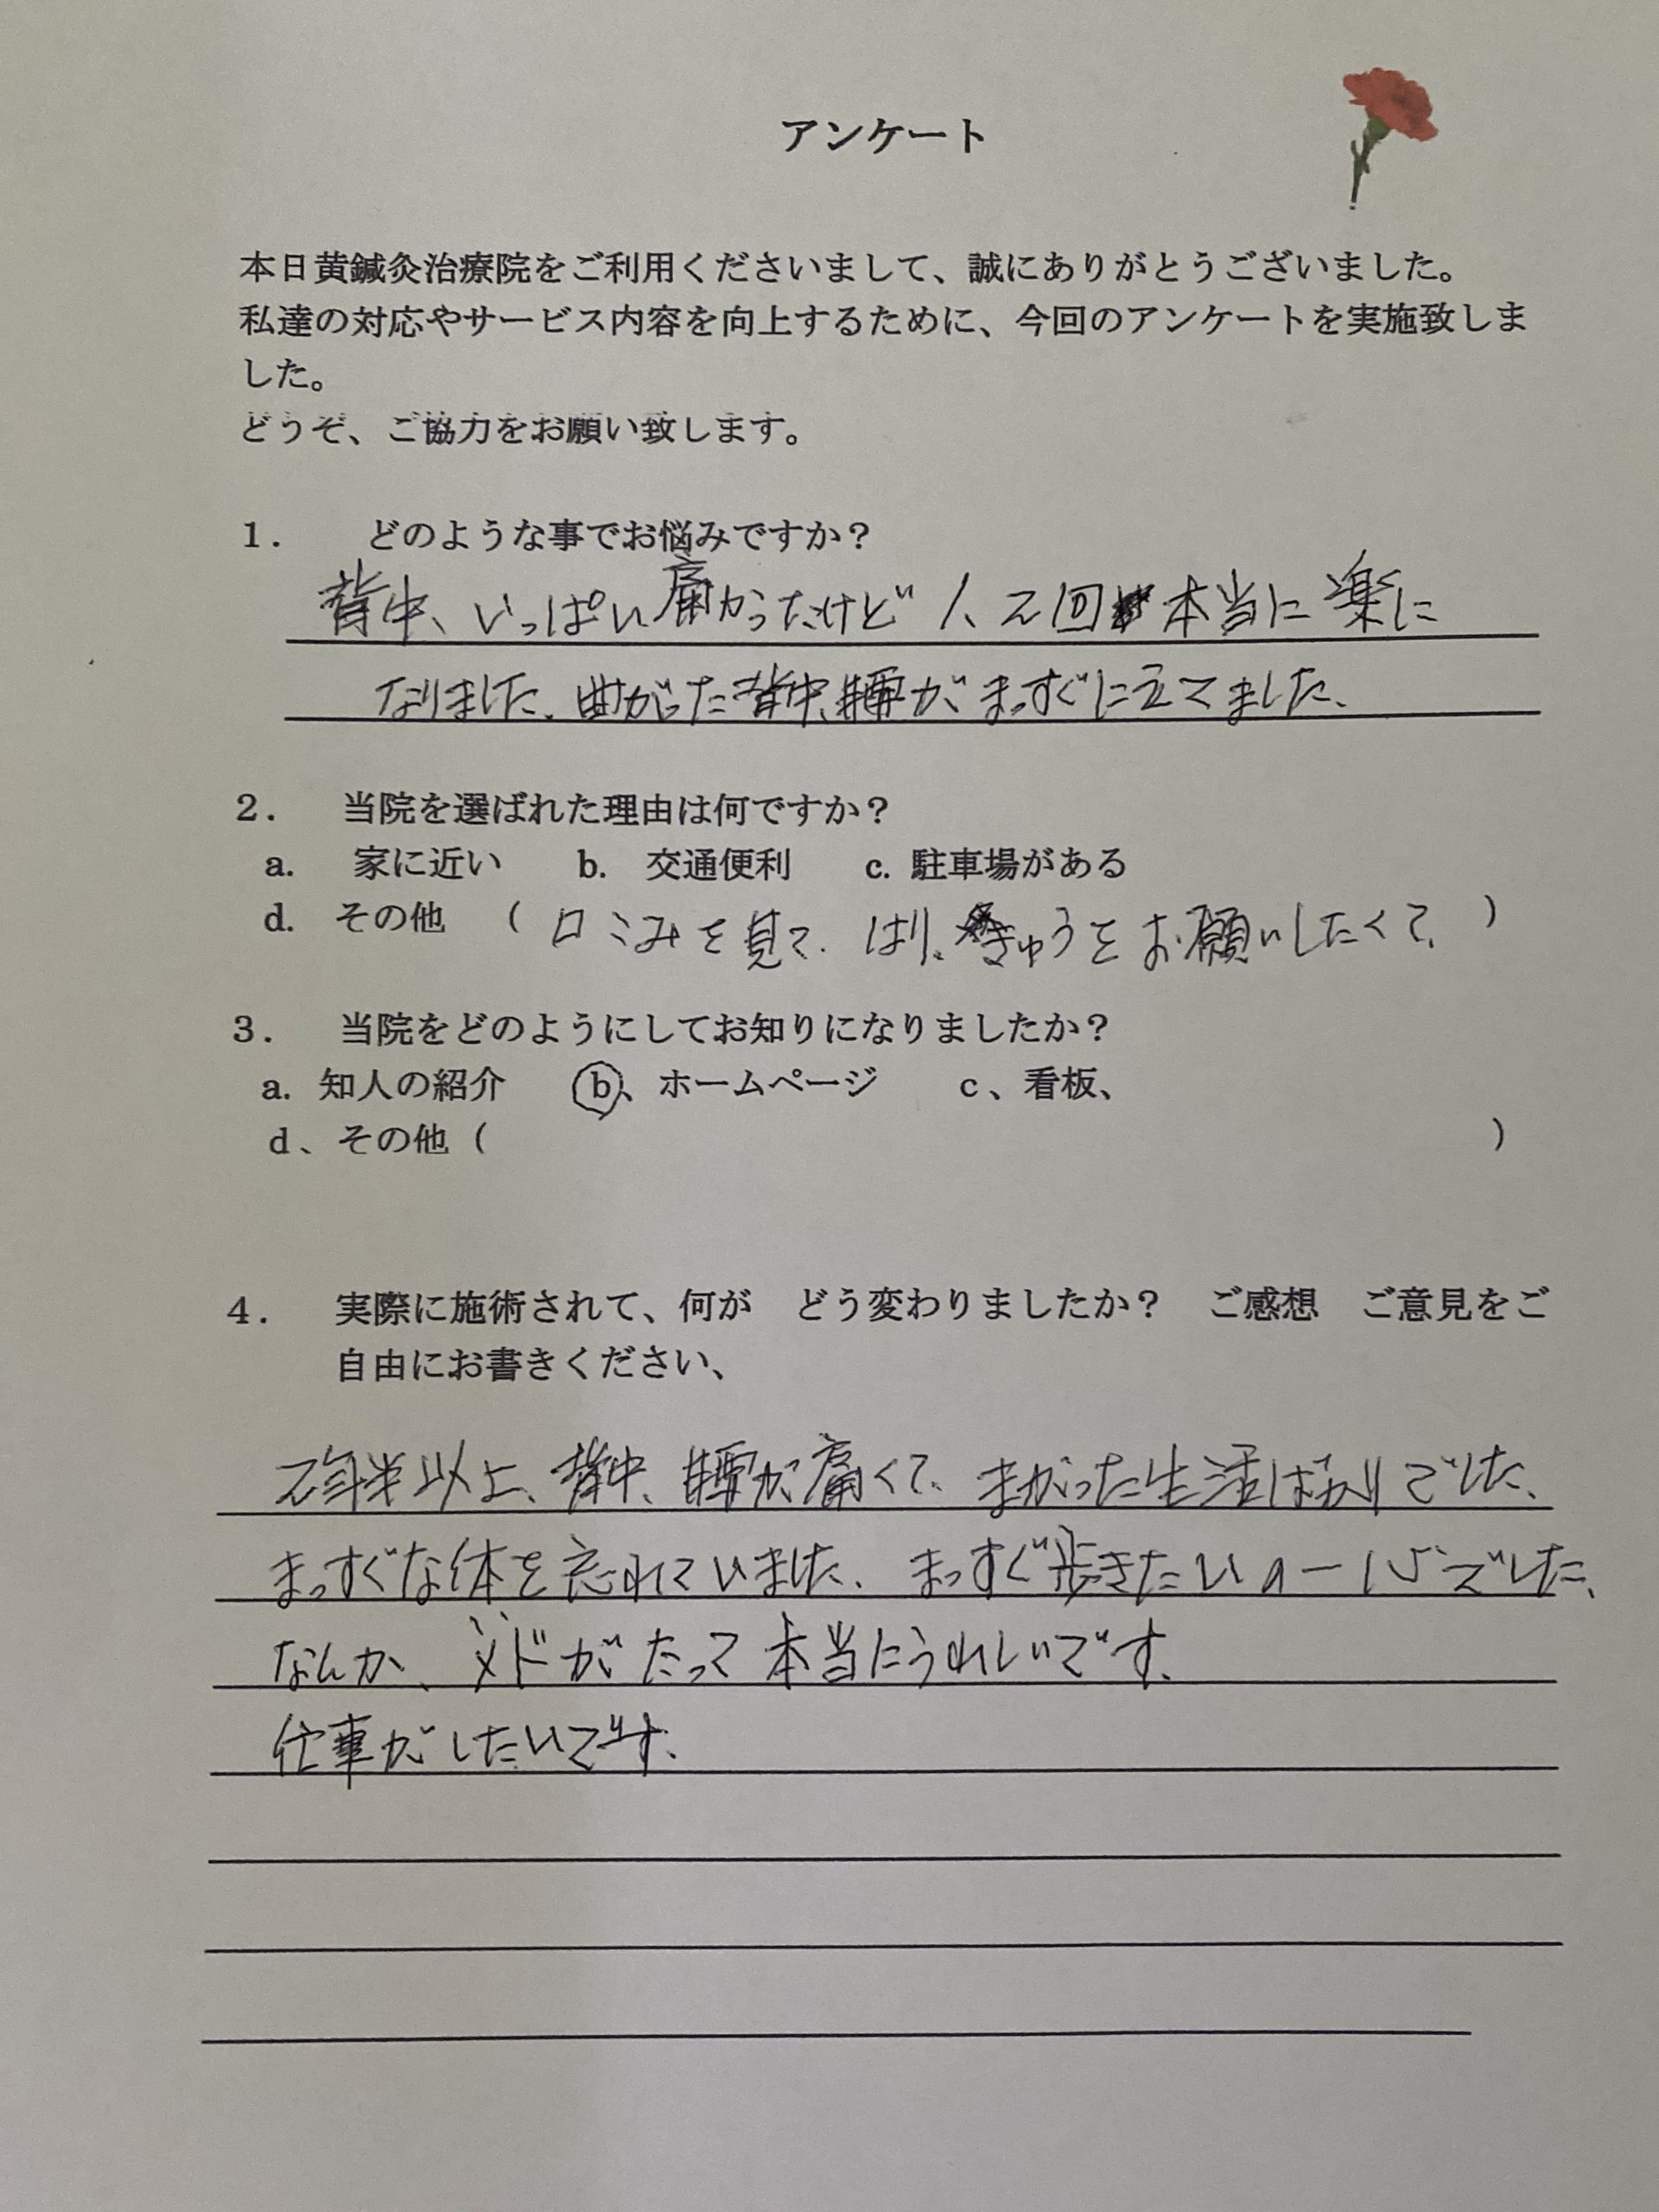 アンケート
本日黄鍼灸治療院をご利用くださいまして、誠にありがとうございました。
私達の対応やサービス内容を向上するために、今回のアンケートを実施致しま
した。
どうぞ、ご協力をお願い致します。
1. どのような事でお悩みですか？
背中、いっぱい痛かったけど 1、2回 本当に楽に
なりました、曲がった背中、腰が、まっすぐに立てました、
2. 当院を選ばれた理由は何ですか？
a. 家に近い b. 交通便利 c. 駐車場がある
d. その他 (口こみを見て、はり、きゅうをお願いしたくて、)
3. 当院をどのようにしてお知りになりましたか？
a. 知人の紹介 b、ホームページ c、看板、
d、その他 ( )
4. 実際に施術されて、何が どう変わりましたか？ ご感想 ご意見をご
自由にお書きください、
2年半以上、背中、腰が痛くて、まがった生活ばかりでした、
まっすぐな体を忘れていました、まっすぐ歩きたいの一心でした、
なんか、メドがたって本当にうれしいです、
仕事がしたいです、